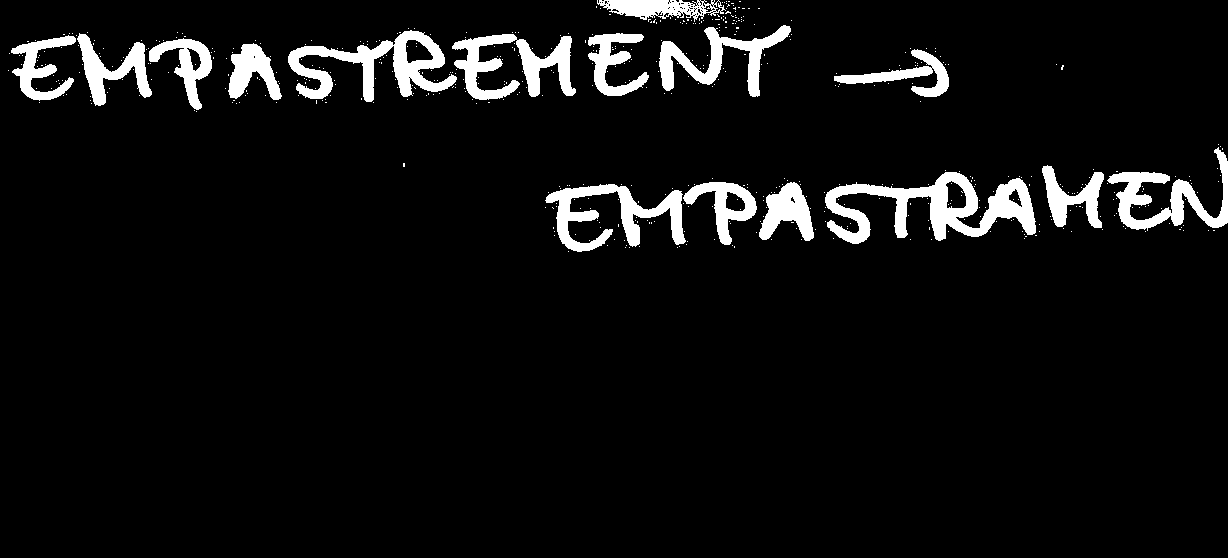 EMPASTREMENT →
EMPASTRAMEN